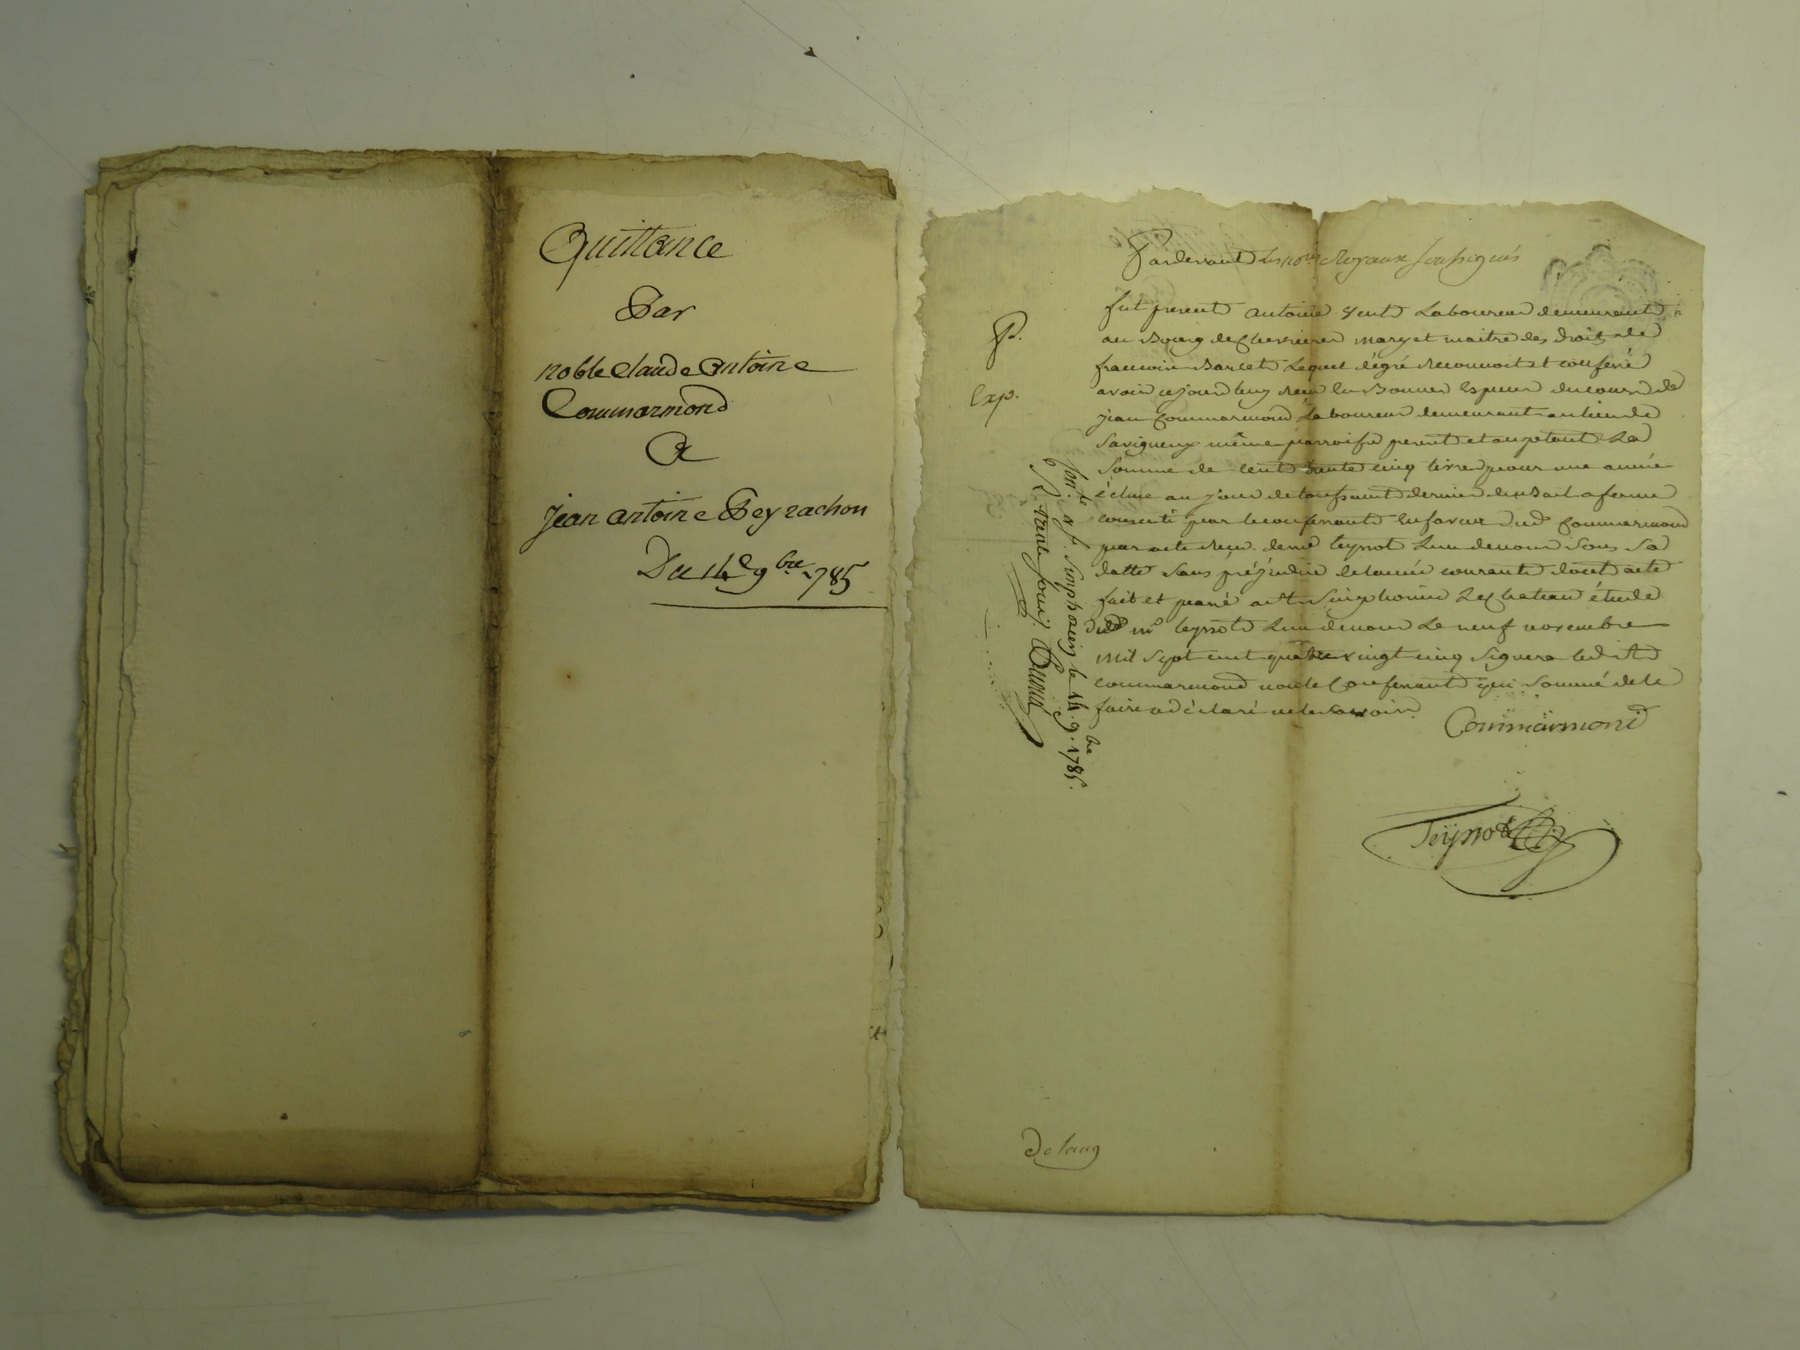 Quittance
Par
noble Claude Antoine
Commarmond
A
jean antoine Peyrachon
Du 14e 9bre 1785
Pardevant les nores Royaux soussignés
P.
fut present antoine laboureur demeurant
au Bourg de Chevrieres mary et maitre des droits de
Exp.
francoise Barcet lequel de gré reconnoit et confesse
avoir cejourdhuy reçu en Bonnes especes du cours de
jean Commarmond Laboureur demeurant au lieu de
Savigneux même parroisse present et acceptant La
Somme de cent trente cinq livres pour une année
échue au jour de toussaint dernier du Bail a ferme
consenti par le confessant en faveur dud Commarmond
par acte reçu de me teyssot l'un de nous sous sa
datte sans préjudice de lannée courante dont acte
fait et passé a St Simphorien le Chateau étude
dud me teyssot l'un de nous le neuf novembre
mil sept cent quatre vingt cinq signera led St
Commarmond non le Confessant qui sommé de le
faire a déclaré ne le savoir.
Commarmond
Teyssot
Con.le a St. Simphorien le 14. 9.bre 1785.
R. sous